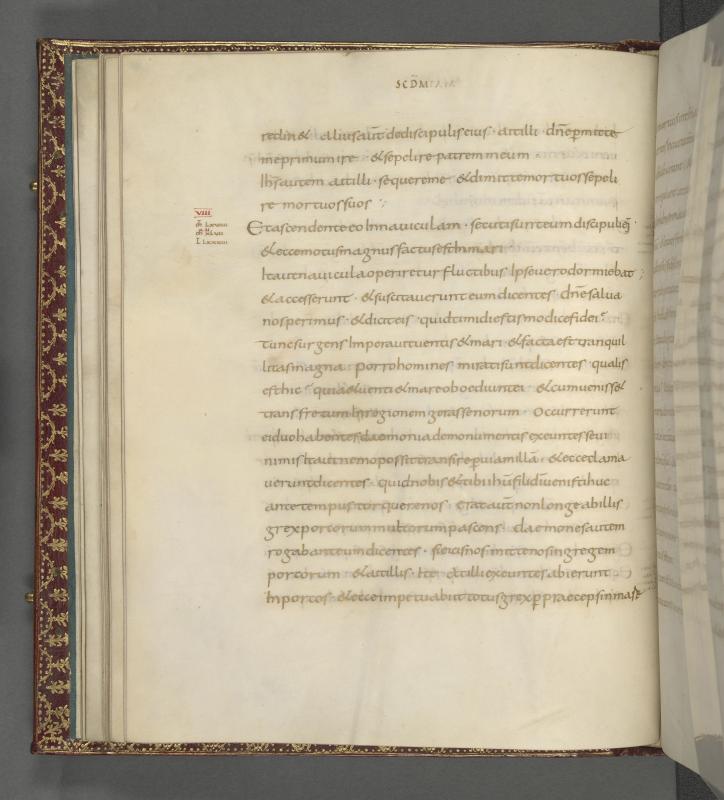 SCD̄M
reclinet aliusaūt dediscipuliseius · aitilli · dn̄epmitte
meprimumire · etsepelirepatremmeum ·
Ihs̄autem aitilli · sequereme · etdimittemortuossepeli
re mortuossuos :
VIII
Etascendenteeo Innauiculam · secutisunteumdiscipulieꝰ
eteccemotusmagnusfactusestInmari ·
Itautnauiculaoperireturfluctibus Ipseuerodormiebat ;
etaccesserunt · etsuscitaueruntteumdicentes · dn̄esalua
nosperimus · etdiciteis · quidtimidiestismodicefidei :
tuncsurgensImperauituentis etmari · etfactaesttranquil
litasmagna · porrohomines miratisuntdicentes · qualis
esthic · quiaetuenti etmareoboediuntei · etcumuenisset
transfretumInregionemgerassenorum · Occurrerunt
eiduohabentesdaemoniademonumentisexeuntesseui
nimisItautnemopossittransireperuiamillā · etecceclama
ueruntdicentes · quidnobisettibiihūfilidīuenistihuc
antetempustorquerenos · erataūtnonlongeabillis
grexporcorummultorumpascens · daemonesautem
rogabanteumdicentes · sieicisnosmittenosIngregem
porcorum · etaitillis · Ite · atilliexeuntesabierunt
Inporcos · etecceimpetuabiittotusgrexp̄praecepsInmare